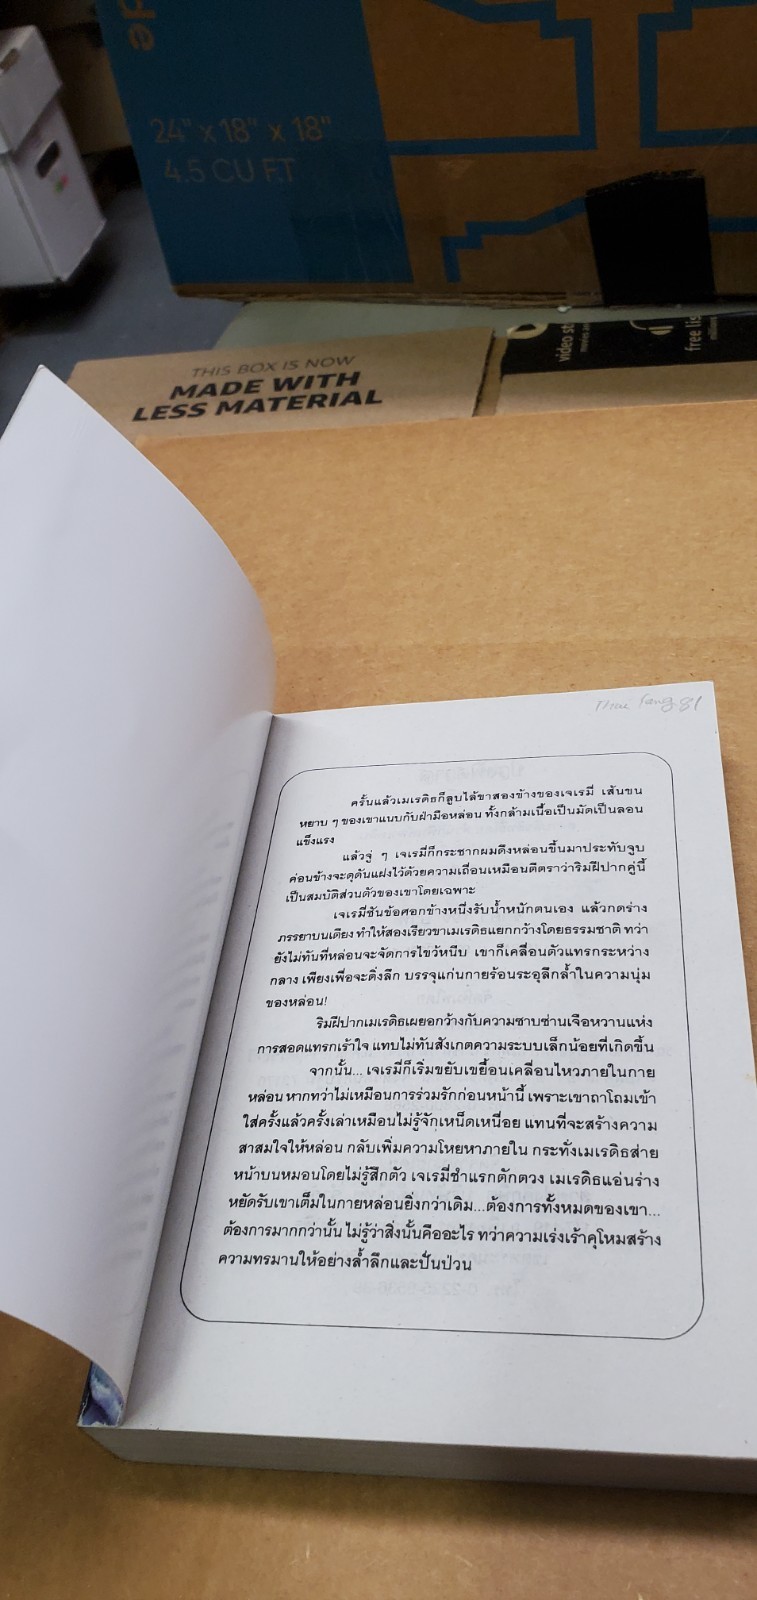 24" x 18" x 18"
4.5 CU FT
THIS BOX IS NOW
MADE WITH
LESS MATERIAL
video st
free lis
ครั้นแล้วเมเรดิธก็ลูบไล้ขาสองข้างของเจเรมี่ เส้นขน
หยาบ ๆ ของเขาแนบกับฝ่ามือหล่อน ทั้งกล้ามเนื้อเป็นมัดเป็นลอน
แข็งแรง
แล้วจู่ ๆ เจเรมี่ก็กระชากผมดึงหล่อนขึ้นมาประทับจูบ
ค่อนข้างจะดุดันแฝงไว้ด้วยความเถื่อนเหมือนตีตราว่าริมฝีปากคู่นี้
เป็นสมบัติส่วนตัวของเขาโดยเฉพาะ
เจเรมี่ชันข้อศอกข้างหนึ่งรับน้ำหนักตนเอง แล้วกดร่าง
ภรรยาบนเตียง ทำให้สองเรียวขาเมเรดิธแยกกว้างโดยธรรมชาติ ทว่า
ยังไม่ทันที่หล่อนจะจัดการไขว้หนีบ เขาก็เคลื่อนตัวแทรกระหว่าง
กลาง เพียงเพื่อจะดิ่งลึก บรรจุแก่นกายร้อนระอุลึกล้ำในความนุ่ม
ของหล่อน!
ริมฝีปากเมเรดิธเผยอกว้างกับความซาบซ่านเจือหวานแห่ง
การสอดแทรกเร้าใจ แทบไม่ทันสังเกตความระบบเล็กน้อยที่เกิดขึ้น
จากนั้น... เจเรมี่ก็เริ่มขยับเขยื้อนเคลื่อนไหวภายในกาย
หล่อน หากทว่าไม่เหมือนการร่วมรักก่อนหน้านี้ เพราะเขาถาโถมเข้า
ใส่ครั้งแล้วครั้งเล่าเหมือนไม่รู้จักเหน็ดเหนื่อย แทนที่จะสร้างความ
สาสมใจให้หล่อน กลับเพิ่มความโหยหาภายใน กระทั่งเมเรดิธส่าย
หน้าบนหมอนโดยไม่รู้สึกตัว เจเรมี่ชำแรกตักตวง เมเรดิธแอ่นร่าง
หยัดรับเขาเต็มในกายหล่อนยิ่งกว่าเดิม...ต้องการทั้งหมดของเขา...
ต้องการมากกว่านั้น ไม่รู้ว่าสิ่งนั้นคืออะไร ทว่าความเร่งเร้าคุโหมสร้าง
ความทรมานให้อย่างล้ำลึกและปั่นป่วน